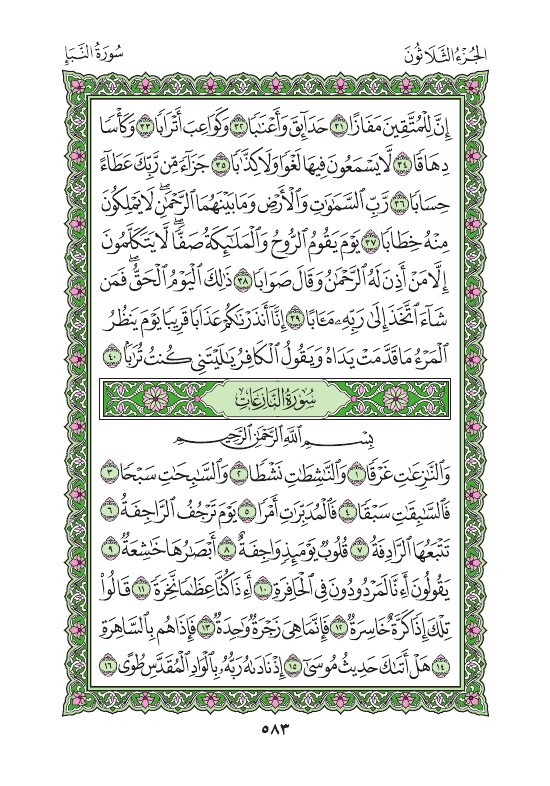 الجُزْءُ الثَّلَاثُونَ
سُورَةُ النَّبَإِ
إِنَّ لِلْمُتَّقِينَ مَفَازًا ٣١ حَدَآئِقَ وَأَعْنَٰبًا ٣٢ وَكَوَاعِبَ أَتْرَابًا ٣٣ وَكَأْسًا
دِهَاقًا ٣٤ لَّا يَسْمَعُونَ فِيهَا لَغْوًا وَلَا كِذَّٰبًا ٣٥ جَزَآءً مِّن رَّبِّكَ عَطَآءً
حِسَابًا ٣٦ رَّبِّ ٱلسَّمَٰوَٰتِ وَٱلْأَرْضِ وَمَا بَيْنَهُمَا ٱلرَّحْمَٰنِۖ لَا يَمْلِكُونَ
مِنْهُ خِطَابًا ٣٧ يَوْمَ يَقُومُ ٱلرُّوحُ وَٱلْمَلَٰٓئِكَةُ صَفًّاۖ لَّا يَتَكَلَّمُونَ
إِلَّا مَنْ أَذِنَ لَهُ ٱلرَّحْمَٰنُ وَقَالَ صَوَابًا ٣٨ ذَٰلِكَ ٱلْيَوْمُ ٱلْحَقُّۖ فَمَن
شَآءَ ٱتَّخَذَ إِلَىٰ رَبِّهِۦ مَـَٔابًا ٣٩ إِنَّآ أَنذَرْنَٰكُمْ عَذَابًا قَرِيبًا يَوْمَ يَنظُرُ
ٱلْمَرْءُ مَا قَدَّمَتْ يَدَاهُ وَيَقُولُ ٱلْكَافِرُ يَٰلَيْتَنِى كُنتُ تُرَٰبًۢا ٤٠
سُورَةُ النَّازِعَاتِ
بِسْمِ ٱللَّهِ ٱلرَّحْمَٰنِ ٱلرَّحِيمِ
وَٱلنَّٰزِعَٰتِ غَرْقًا ١ وَٱلنَّٰشِطَٰتِ نَشْطًا ٢ وَٱلسَّٰبِحَٰتِ سَبْحًا ٣
فَٱلسَّٰبِقَٰتِ سَبْقًا ٤ فَٱلْمُدَبِّرَٰتِ أَمْرًا ٥ يَوْمَ تَرْجُفُ ٱلرَّاجِفَةُ ٦
تَتْبَعُهَا ٱلرَّادِفَةُ ٧ قُلُوبٌ يَوْمَئِذٍ وَاجِفَةٌ ٨ أَبْصَٰرُهَا خَٰشِعَةٌ ٩
يَقُولُونَ أَءِنَّا لَمَرْدُودُونَ فِى ٱلْحَافِرَةِ ١٠ أَءِذَا كُنَّا عِظَٰمًا نَّخِرَةً ١١ قَالُوا۟
تِلْكَ إِذًا كَرَّةٌ خَاسِرَةٌ ١٢ فَإِنَّمَا هِىَ زَجْرَةٌ وَٰحِدَةٌ ١٣ فَإِذَا هُم بِٱلسَّاهِرَةِ
١٤ هَلْ أَتَىٰكَ حَدِيثُ مُوسَىٰٓ ١٥ إِذْ نَادَىٰهُ رَبُّهُۥ بِٱلْوَادِ ٱلْمُقَدَّسِ طُوًى ١٦
٥٨٣